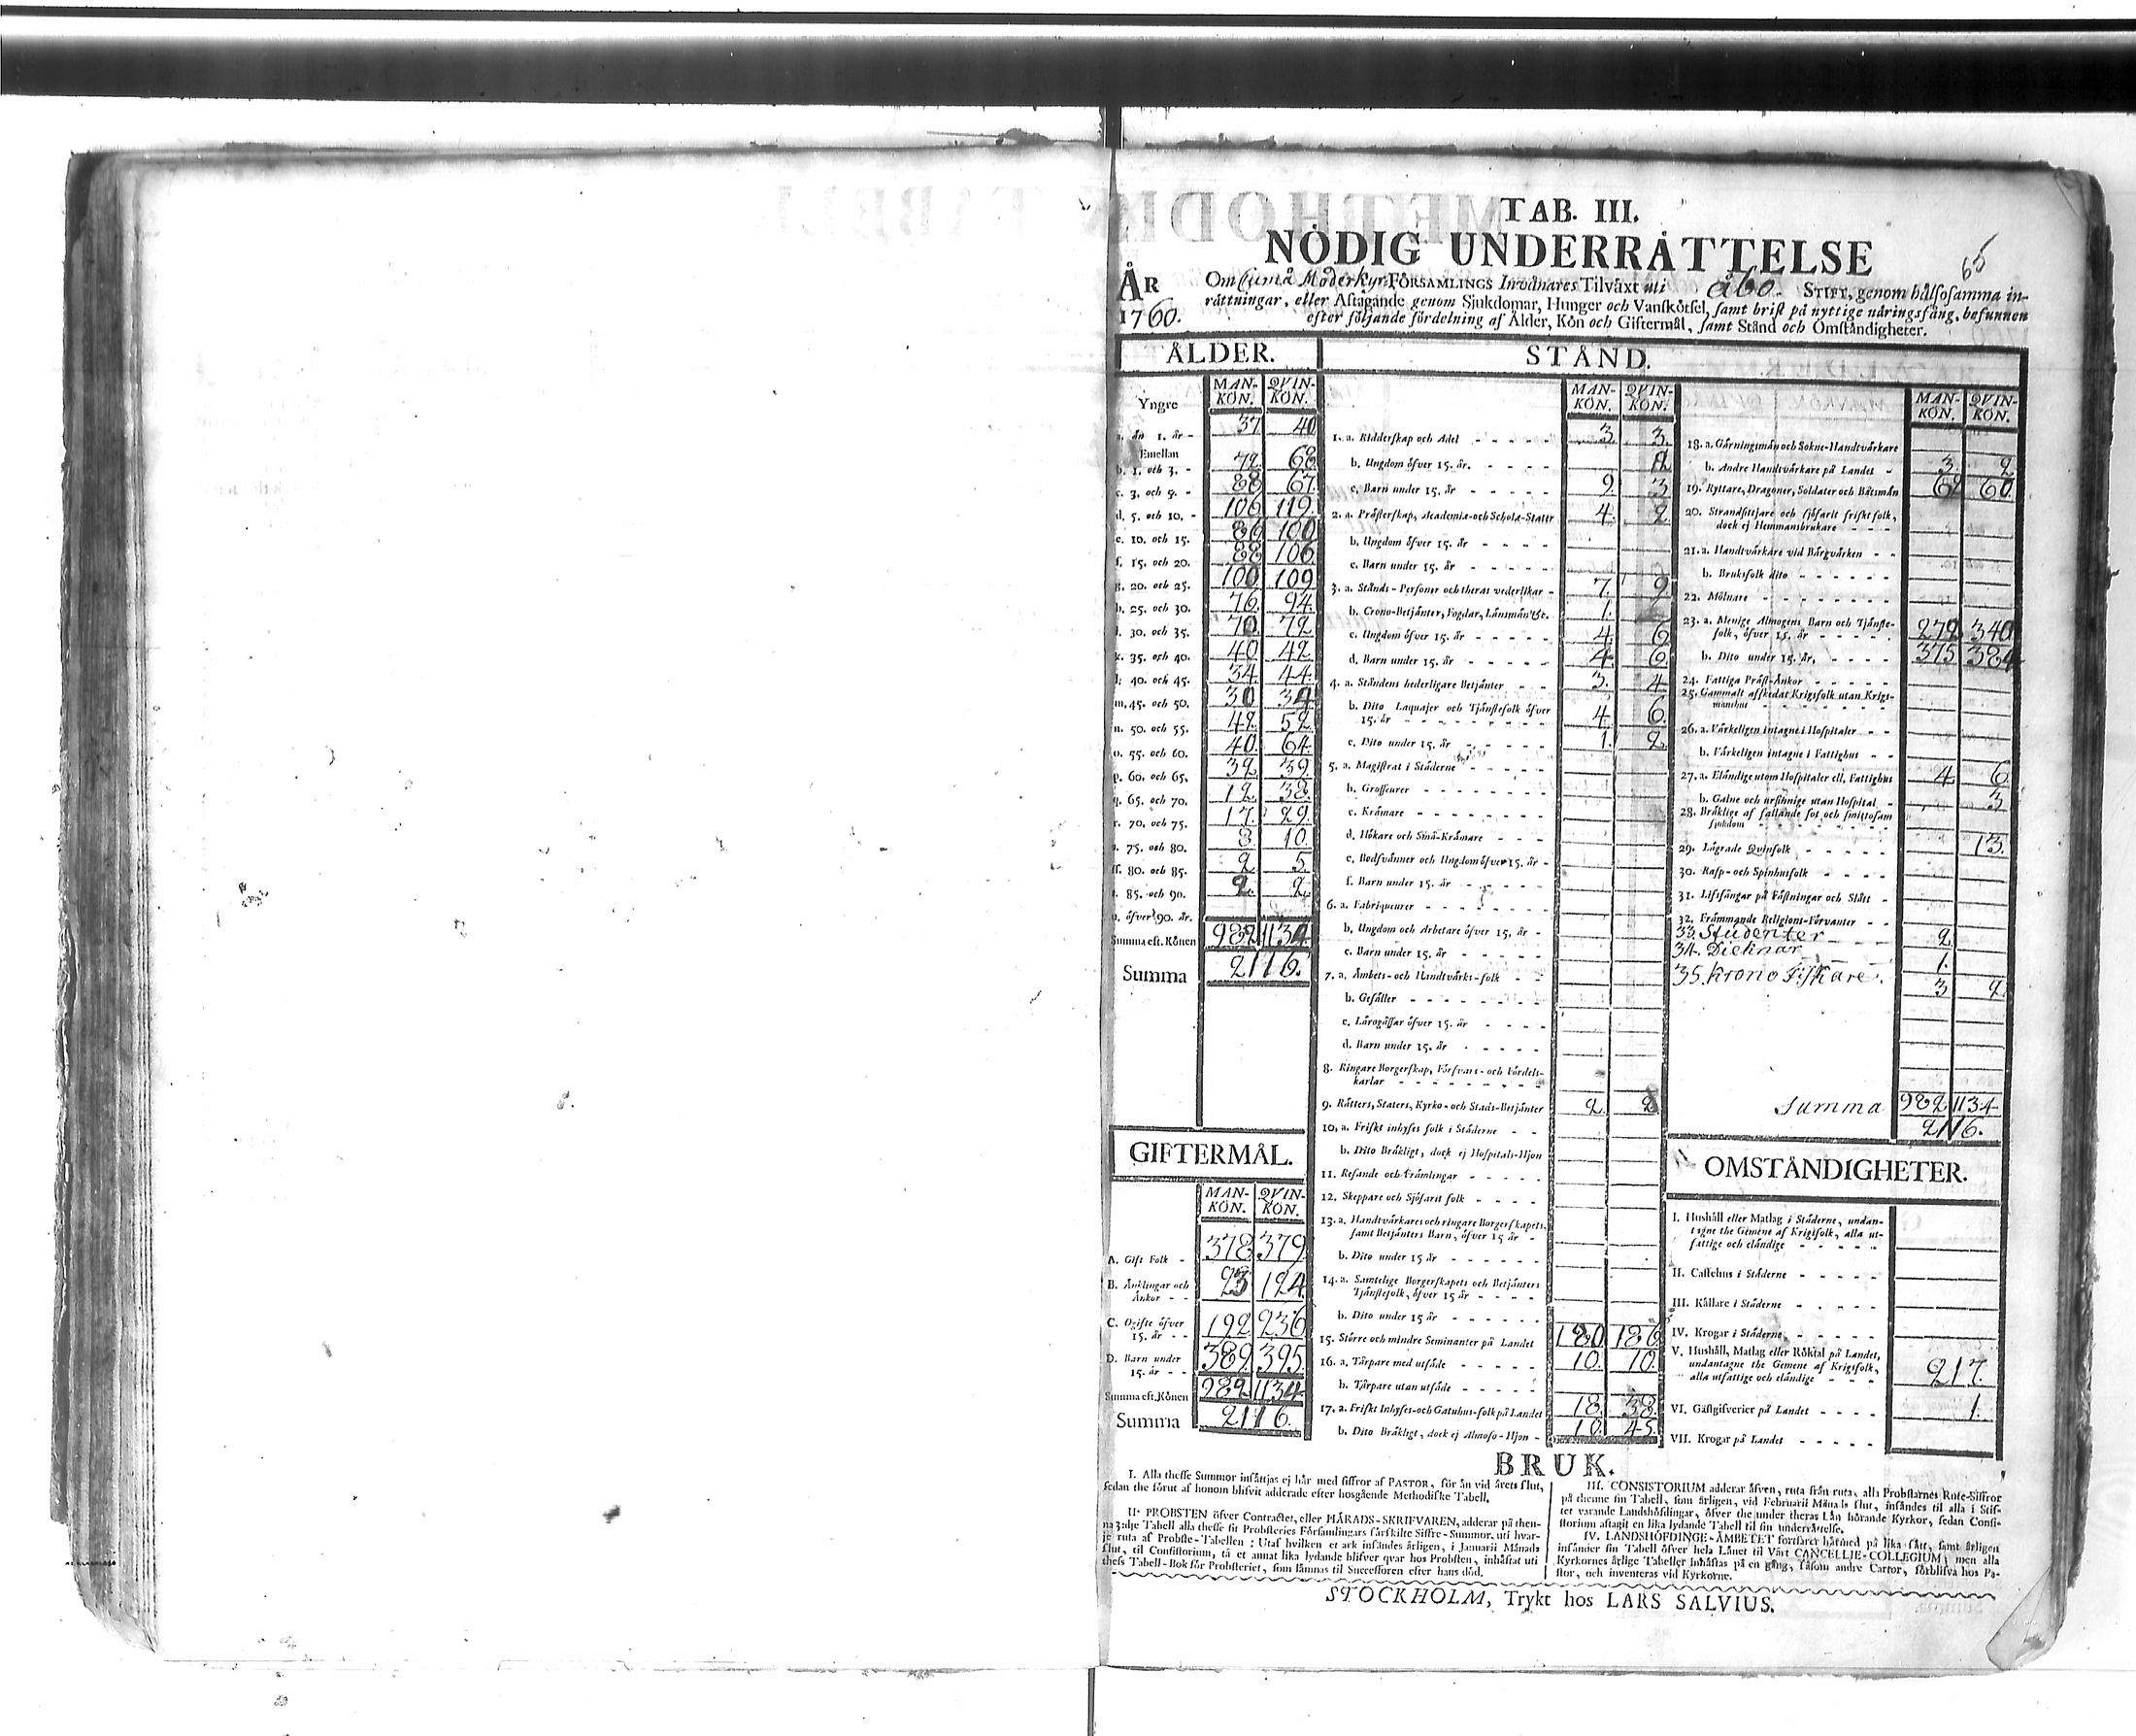 TAB. III.
NÖDIG UNDERRÄTTELSE
65
ÅR 1760.
Om Cumå Moderkyr: FÖRSAMLINGS Invånares Tilväxt uti Åbo. STIFT, genom hälsosamma in-
rättningar, eller Aftagande genom Sjukdomar, Hunger och Vanskötsel, samt brist på nyttige näringsfång, befunnen
efter följande fördelning af Ålder, Kön och Giftermål, samt Stånd och Omständigheter.
ÅLDER.
MAN-KÖN. QVIN-KÖN.
Yngre
a. än 1. år - 37 40
Emellan
b. 1. och 3. - 72 68
c. 3. och 5. - 88 67.
d. 5. och 10. - 106 119.
e. 10. och 15. 86 100
f. 15. och 20. 88 106
g. 20. och 25. 100 109
h. 25. och 30. 76. 94.
i. 30. och 35. 70. 72
k. 35. och 40. 40 42
l. 40. och 45. 34 44
m. 45. och 50. 30 34
n. 50. och 55. 42 52
o. 55. och 60. 40. 64
p. 60. och 65. 32 39
q. 65. och 70. 12 38.
r. 70. och 75. 17. 29.
s. 75. och 80. 3 10.
ff. 80. och 85. 2 5.
t. 85. och 90. 2. 2
u. öfver 90. år.
Summa eft. Könen 982 1134
Summa 2116.
GIFTERMÅL.
MAN-KÖN. QVIN-KÖN.
A. Gift Folk - 378 379
B. Änklingar och Änkor - - 23 124
C. Ogifte öfver 15. år - - 192 236
D. Barn under 15. år - - 389 395
Summa eft. Könen 982 1134
Summa 2116.
STÅND.
MAN-KÖN. QVIN-KÖN.
1. a. Ridderskap och Adel 3 3.
b. Ungdom öfver 15. år.
c. Barn under 15. år 9. 3
2. a. Prästerskap, Academiæ-och Scholæ-Stater 4. 2
b. Ungdom öfver 15. år
c. Barn under 15. år
3. a. Stånds-Personer och theras vederlikar - 7. 9
b. Crono-Betjänter, Fogdar, Länsmän &c. 1.
c. Ungdom öfver 15. år 4. 6
d. Barn under 15. år 4 6.
4. a. Ståndens hederligare Betjänter 3. 4
b. Dito Laquajer och Tjänstefolk öfver 15. år 4 6.
c. Dito under 15. år 1. 2.
5. a. Magistrat i Städerne
b. Grosseurer
c. Krämare
d. Hökare och Små-Krämare
e. Bodsvänner och Ungdom öfver 15. år -
f. Barn under 15. år
6. a. Fabriqueurer
b. Ungdom och Arbetare öfver 15. år -
c. Barn under 15. år
7. a. Ämbets-och Handtvärks-folk
b. Gesäller
c. Lärogåssar öfver 15. år
d. Barn under 15. år
8. Ringare Borgerskap, Försvars-och Fördels-karlar
9. Rätters, Staters, Kyrko-och Stads-Betjänter 2. 2
10. a. Friskt inhyses folk i Städerne
b. Dito Bräkligt, dock ej Hospitals-Hjon
11. Resande och Främlingar
12. Skeppare och Sjöfarit folk
13. a. Handtvärkares och ringare Borgerskapets, samt Betjänters Barn, öfver 15 år
b. Dito under 15 år
14. a. Samtelige Borgerskapets och Betjänters Tjänstefolk, öfver 15 år
b. Dito under 15 år
15. Större och mindre Seminanter på Landet 180 186
16. a. Tärpare med utsäde 10. 10.
b. Tärpare utan utsäde
17. a. Friskt Inhyses-och Gatuhus-folk på Landet 18. 38.
b. Dito Bräkligt, dock ej Almoso-Hjon - 10. 45.
MAN-KÖN. QVIN-KÖN.
18. a. Gärningsmän och Sokne-Handtvärkare
b. Andre Handtvärkare på Landet - 3 2
19. Ryttare, Dragoner, Soldater och Båtsmän 62 60
20. Strandsittjare och sjöfarit friskt folk, dock ej Hemmansbrukare
21. a. Handtvärkare vid Bärgvärken
b. Bruksfolk dito
22. Mölnare
23. a. Menige Almogens Barn och Tjänste-folk, öfver 15. år 272 340
b. Dito under 15. år. 375 384
24. Fattiga Präst-Änkor
25. Gammalt afskedat Krigsfolk utan Krigsmanshus
26. a. Värkeligen intagne i Hospitaler
b. Värkeligen intagne i Fattighus
27. a. Eländige utom Hospitaler ell. Fattighus 4. 6
b. Galne och ursinnige utan Hospital - 3
28. Bräklige af fallande sot och smittosam sjukdom
29. Lägrade Qvinfolk 13.
30. Rasp-och Spinhusfolk
31. Lifsfångar på Fästningar och Slått -
32. Främmande Religions-Förvanter
33. Studenter 2
34. Dieknar 1.
35. Krono Fiskare. 3 2
Summa 982 1134
2116.
OMSTÄNDIGHETER.
I. Hushåll eller Matlag i Städerne, undantagne the Gemene af Krigsfolk, alla utfattige och eländige
II. Caffehus i Städerne
III. Källare i Städerne
IV. Krogar i Städerne
V. Hushåll, Matlag eller Röktal på Landet, undantagne the Gemene af Krigsfolk, alla utfattige och eländige 217.
VI. Gästgifverier på Landet 1.
VII. Krogar på Landet
BRUK.
I. Alla thesse Summor insättjas ej här med siffror af PASTOR, för än vid årets slut,
sedan the förut af honom blifvit adderade efter hosgående Methodiske Tabell.
II. PROBSTEN öfver Contractet, eller HÄRADS-SKRIFVAREN, adderar på then-
na 3:dje Tabell alla thesse sit Probsteries Församlingars särskilte Siffre-Summor, uti hvar-
je ruta af Probste-Tabellen: Utaf hvilken et ark insändes årligen, i Januarii Månads
slut, til Consistorium, tå et annat lika lydande blifver qvar hos Probsten, inhäftat uti
thess Tabell-Bok för Probsteriet, som lämnas til Successoren efter hans död.
III. CONSISTORIUM adderar äfven, ruta från ruta, alla Probstarnes Rute-Siffror
på thenne sin Tabell, som årligen, vid Februarii Månads slut, insändes til alla i Stif-
tet varande Landshöfdingar, öfver the under theras Län hörande Kyrkor, sedan Consi-
storium aftagit en lika lydande Tabell til sin underrättelse.
IV. LANDSHÖFDINGE-ÄMBETET fortfarer härmed på lika sätt, samt årligen
insänder sin Tabell öfver hela Länet til Vårt CANCELLIE-COLLEGIUM; men alla
Kyrkornes årlige Tabeller inhäftas på en gång, såsom andre Cartor, förblifva hos Pa-
stor, och inventeras vid Kyrkorne.
STOCKHOLM, Trykt hos LARS SALVIUS.